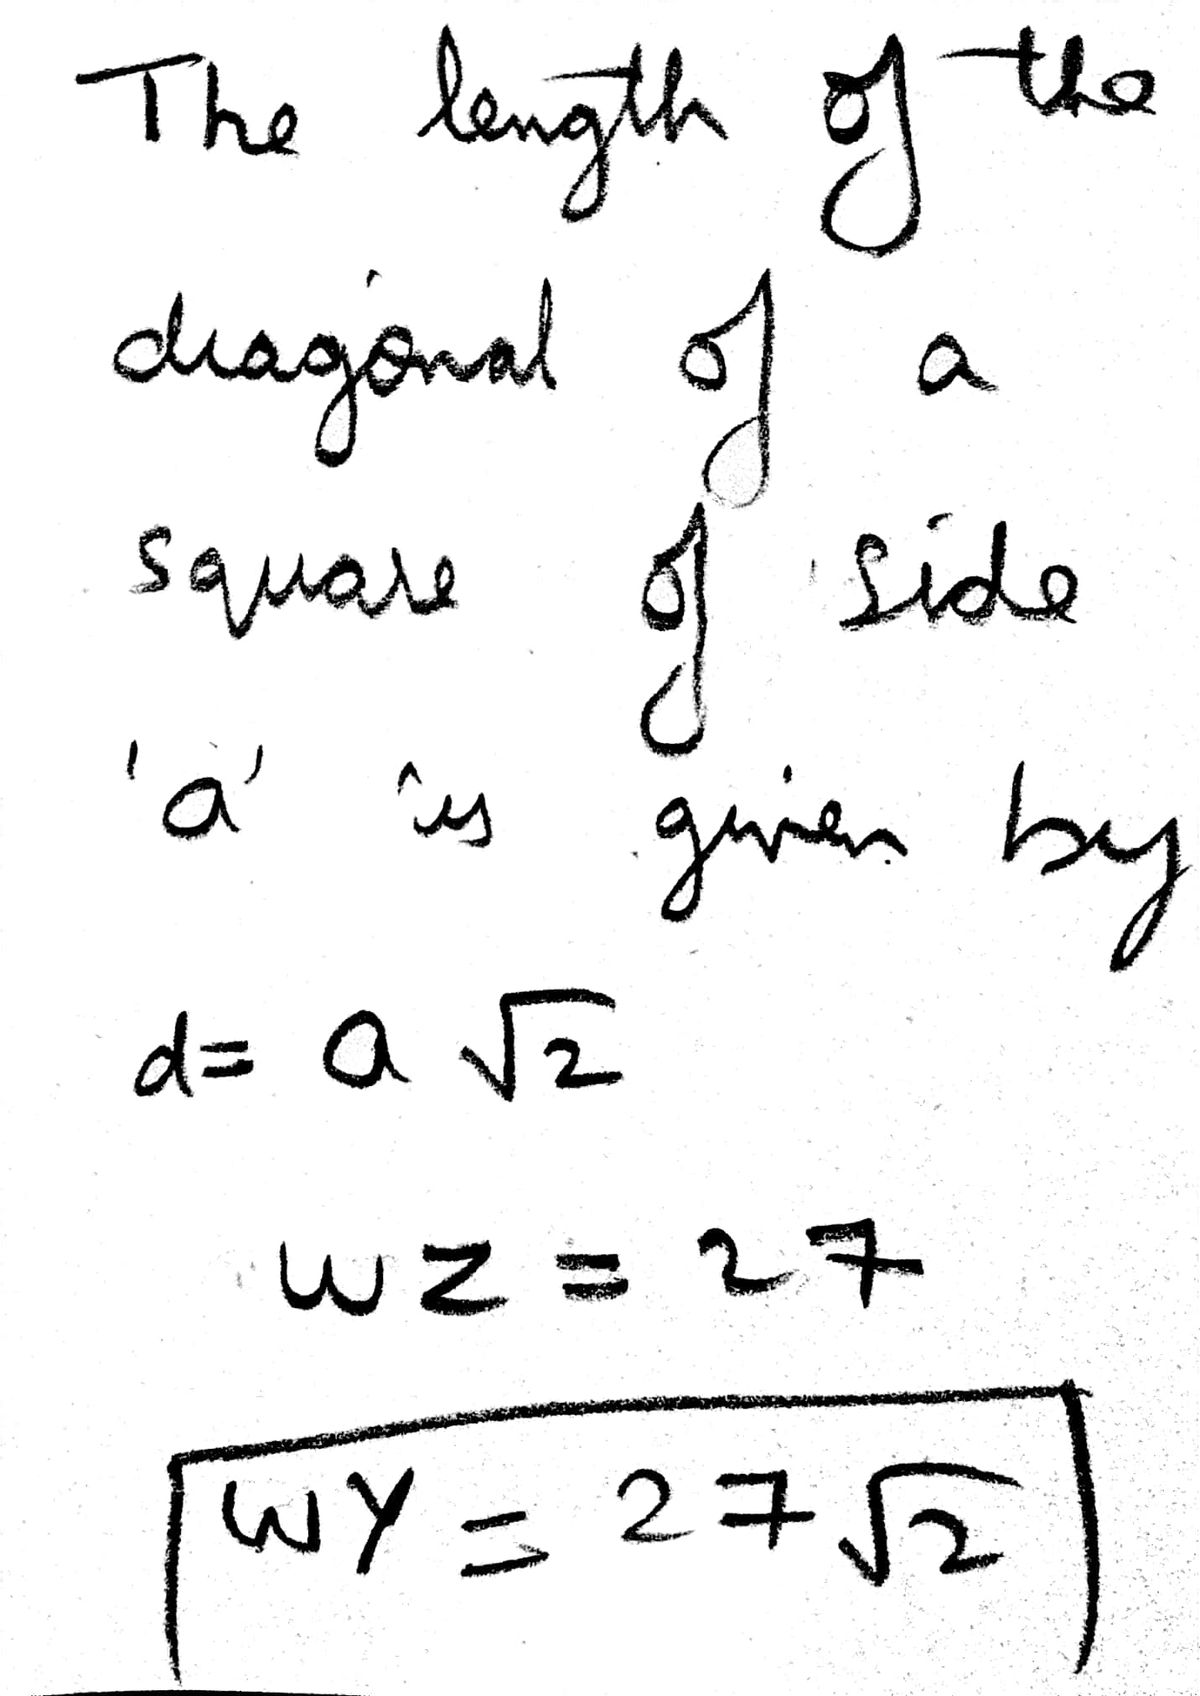 The length of the
diagonal of a
square of side
'a' is given by
d= a √2
WZ = 27
WY = 27√2